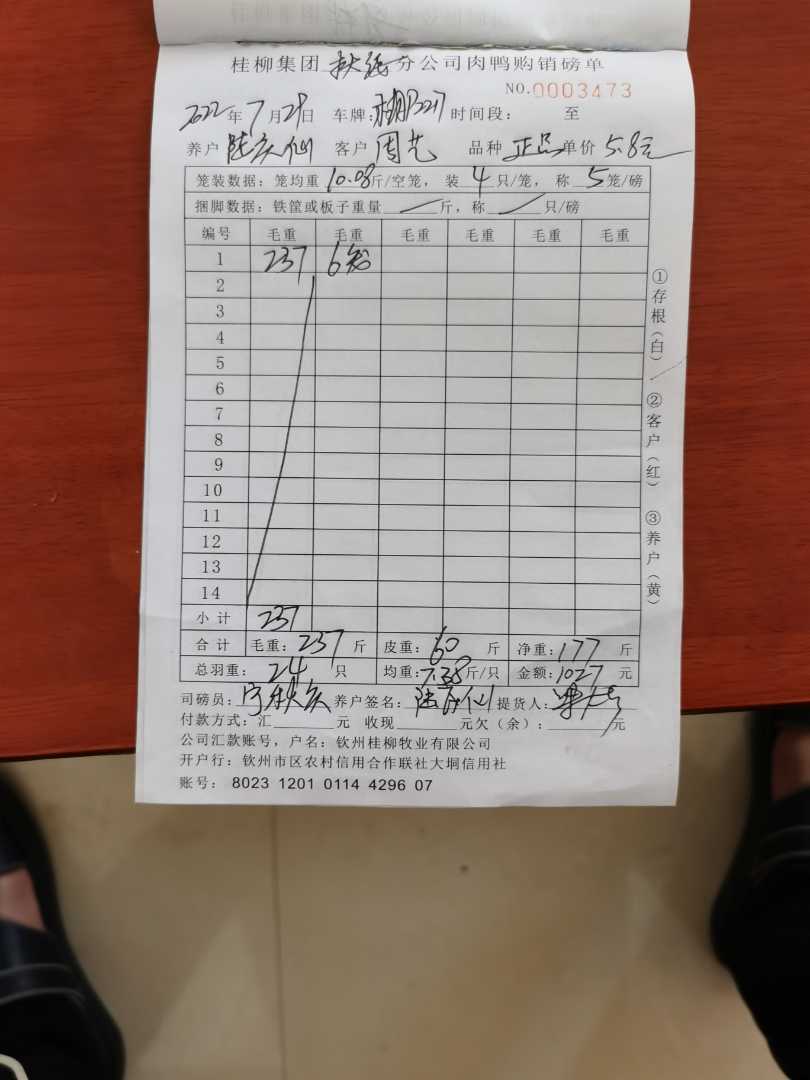 桂柳集团 分公司肉鸭购销磅单
NO.0003473
2022年7月29日 车牌: 时间段: 至
养户 陆庆仙 客户 周艺 品种 正品 单价 5.8元
笼装数据:笼均重 10.08 斤/空笼, 装 4 只/笼, 称 5 笼/磅
捆脚数据:铁筐或板子重量 斤,称 只/磅
编号 毛重 毛重 毛重 毛重 毛重 毛重
1 237 6笼
2
3
4
5
6
7
8
9
10
11
12
13
14
小计 237
合计 毛重:237 斤 皮重:60 斤 净重:177 斤
总羽重:24 只 均重:7.38斤/只 金额:1027 元
司磅员: 养户签名:陆庆仙 提货人:
付款方式:汇 元 收现 元欠(余): 元
公司汇款账号,户名:钦州桂柳牧业有限公司
开户行:钦州市区农村信用合作联社大垌信用社
账号: 8023 1201 0114 4296 07
①存根(白)
②客户(红)
③养户(黄)